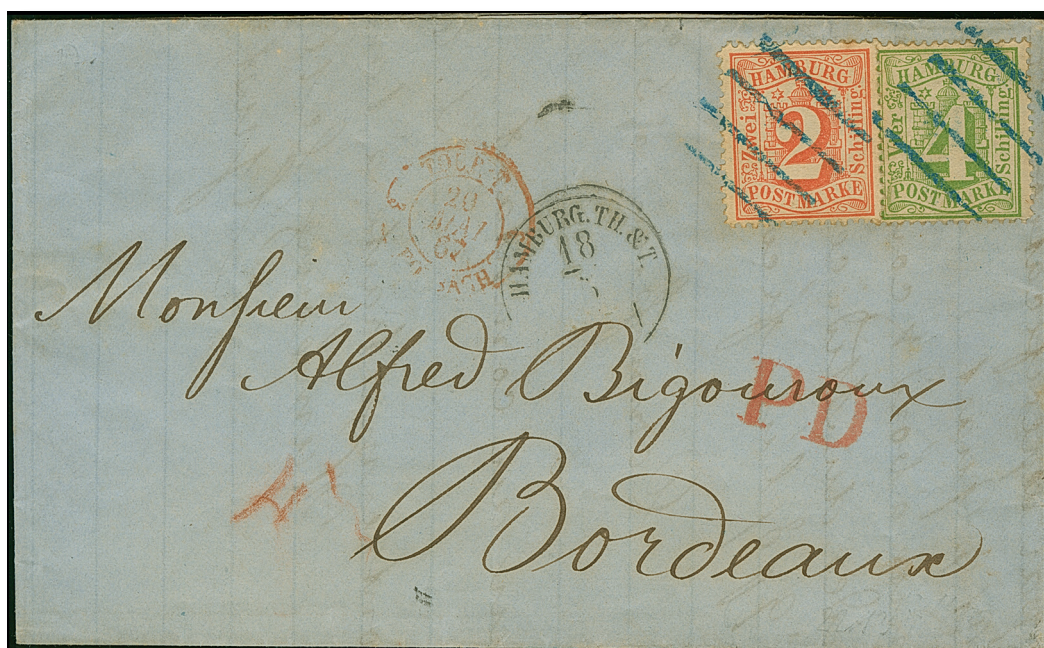 HAMBURG
Zwei
2
Schilling.
POSTMARKE
HAMBURG
Vier
4
Schilling.
POSTMARKE
20
MAI
67
HAMBURG. TH. & T.
18
5
Monsieur
Alfred Bigouroux
PD
Bordeaux